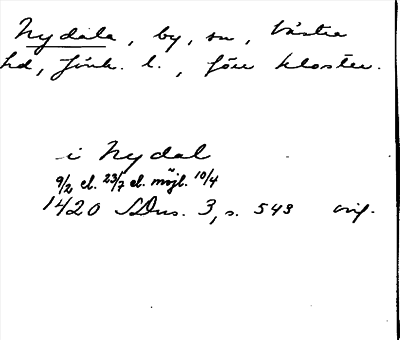 Nydala, by, sn, Västra
hd, Jönk. l., förr kloster.
i Nydal
9/2 el. 23/7 el. möjl. 10/4
1420 SDns. 3, s. 543 orig.